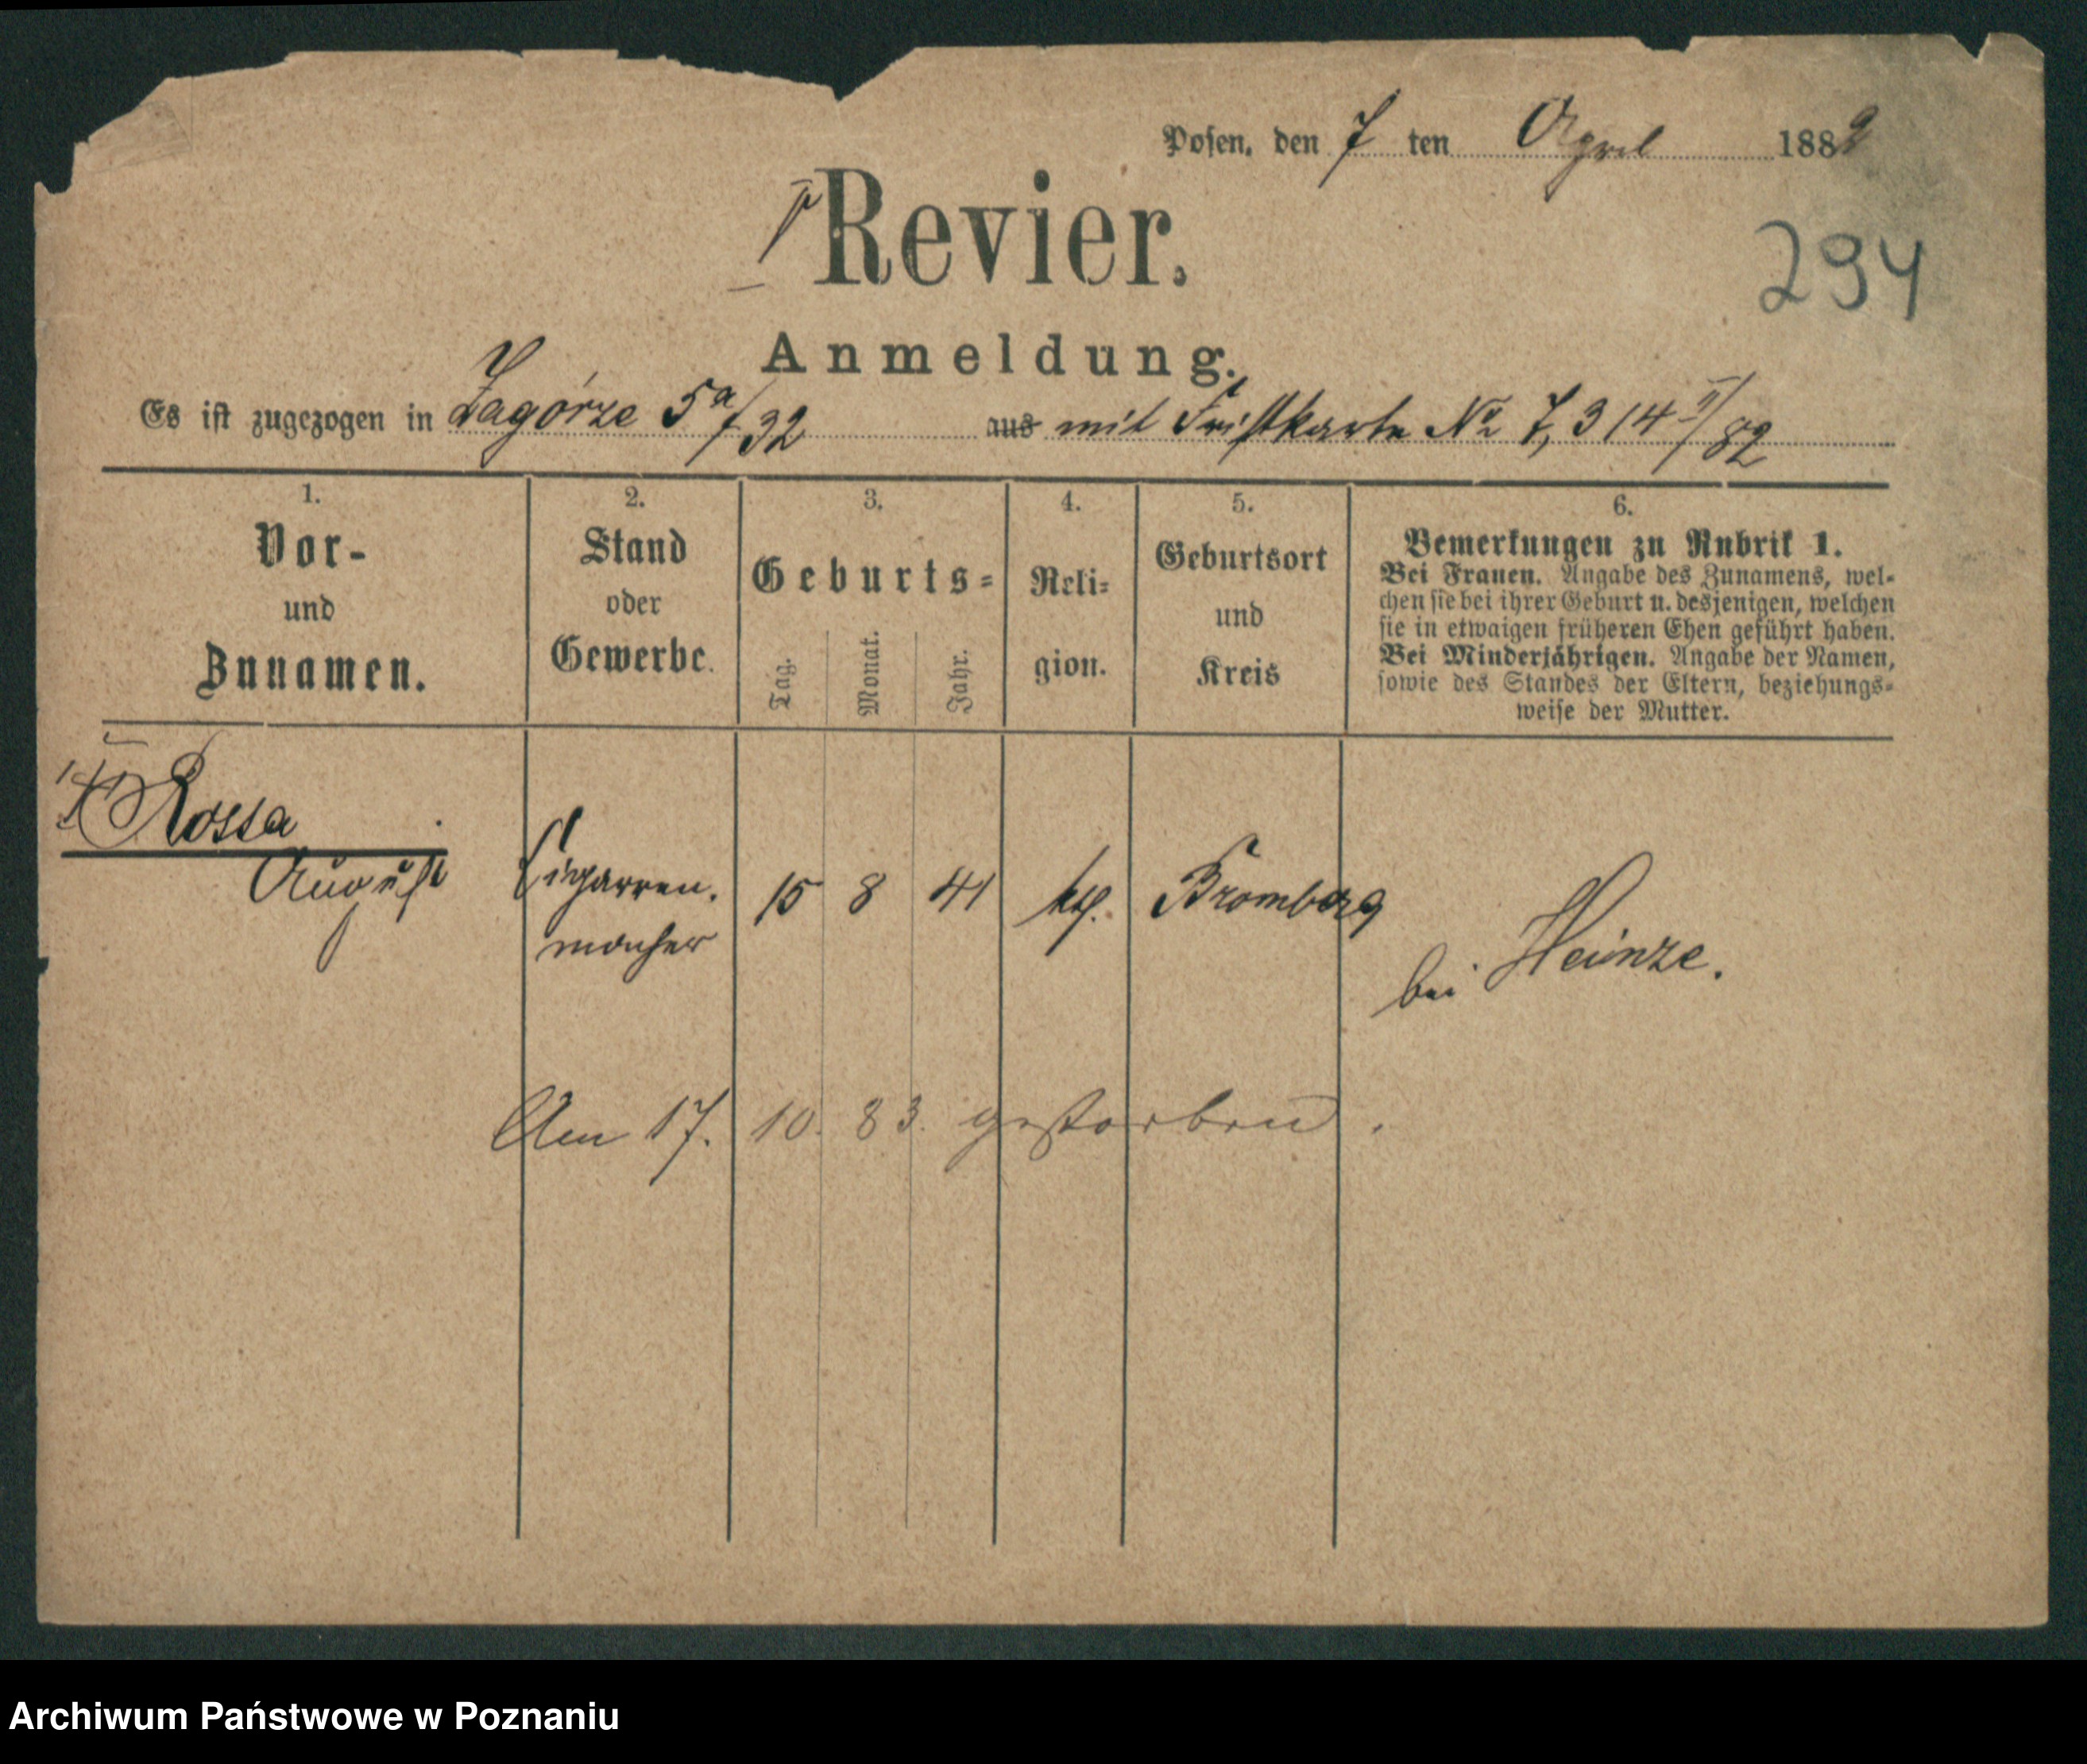 Posen, den 7 ten April 1882
Revier.
294
Anmeldung.
Es ist zugezogen in Zagórze 5a/32 aus mit Fristkarte No 7,314 II/82
1. 2. 3. 4. 5. 6.
Vor- und Zunamen.
Stand oder Gewerbe.
Geburts-
Tag. Monat. Jahr.
Reli-
gion.
Geburtsort
und
Kreis
Bemerkungen zu Rubrik 1.
Bei Frauen. Angabe des Zunamens, wel-
chen sie bei ihrer Geburt u. desjenigen, welchen
sie in etwaigen früheren Ehen geführt haben.
Bei Minderjährigen. Angabe der Namen,
sowie des Standes der Eltern, beziehungs-
weise der Mutter.
Rossa
August Cigarren- 15 8 41 kth. Bromberg
macher
bei Heinze.
Am 17. 10. 83. gestorben.
Archiwum Państwowe w Poznaniu